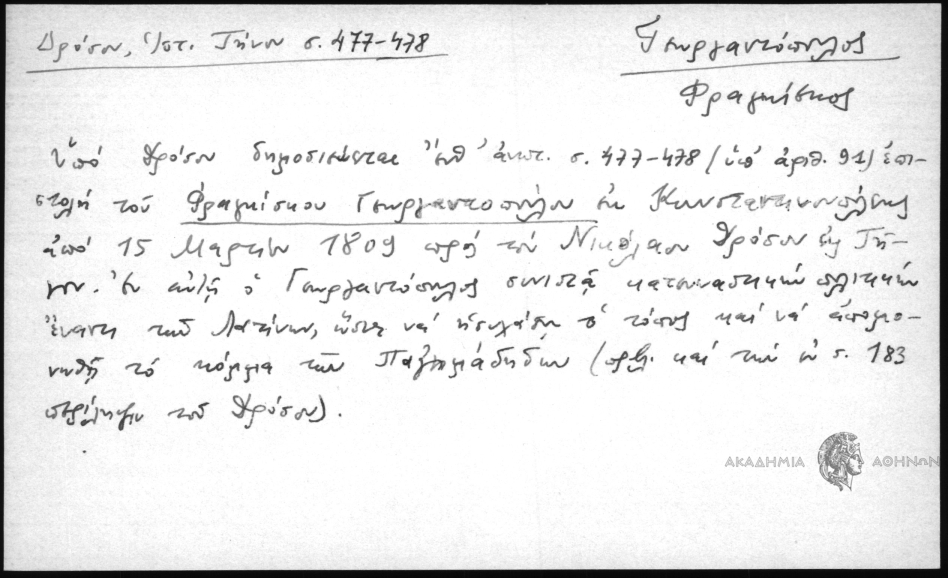 Δρόσου, Ἱστ. Τήνου σ. 477-478
Γεωργαντόπουλος
Φραγκίσκος
Ὑπό Δρόσου δημοσιεύεται ἐνθ' ἀνωτ. σ. 477-478 (ὑπ' ἀριθ. 91) ἐπι-
στολή τοῦ Φραγκίσκου Γεωργαντοπούλου ἐκ Κωνσταντινουπόλεως
ἀπό 15 Μαρτίου 1809 πρός τόν Νικόλαον Δρόσον εἰς Τῆ-
νον. Ἐν αὐτῇ ὁ Γεωργαντόπουλος συνιστᾷ κατευναστικήν πολιτικήν
ἔναντι τῶν Λατίνων, ὥστε νά ἡσυχάσῃ ὁ τόπος καί νά ἀπομο-
νωθῇ τό κόμμα τῶν Παξιμάδηδων (πρβλ. καί τήν ἐν σ. 183
περίληψιν τοῦ Δρόσου).
ΑΚΑΔΗΜΙΑ ΑΘΗΝΩΝ